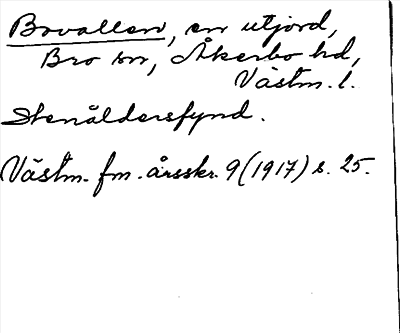 Bovallen, en utjord,
Bro sn, Åkerbo hd,
Västm. l.
Stenåldersfynd.
Västm. fm. årsskr. 9 (1917) s. 25.